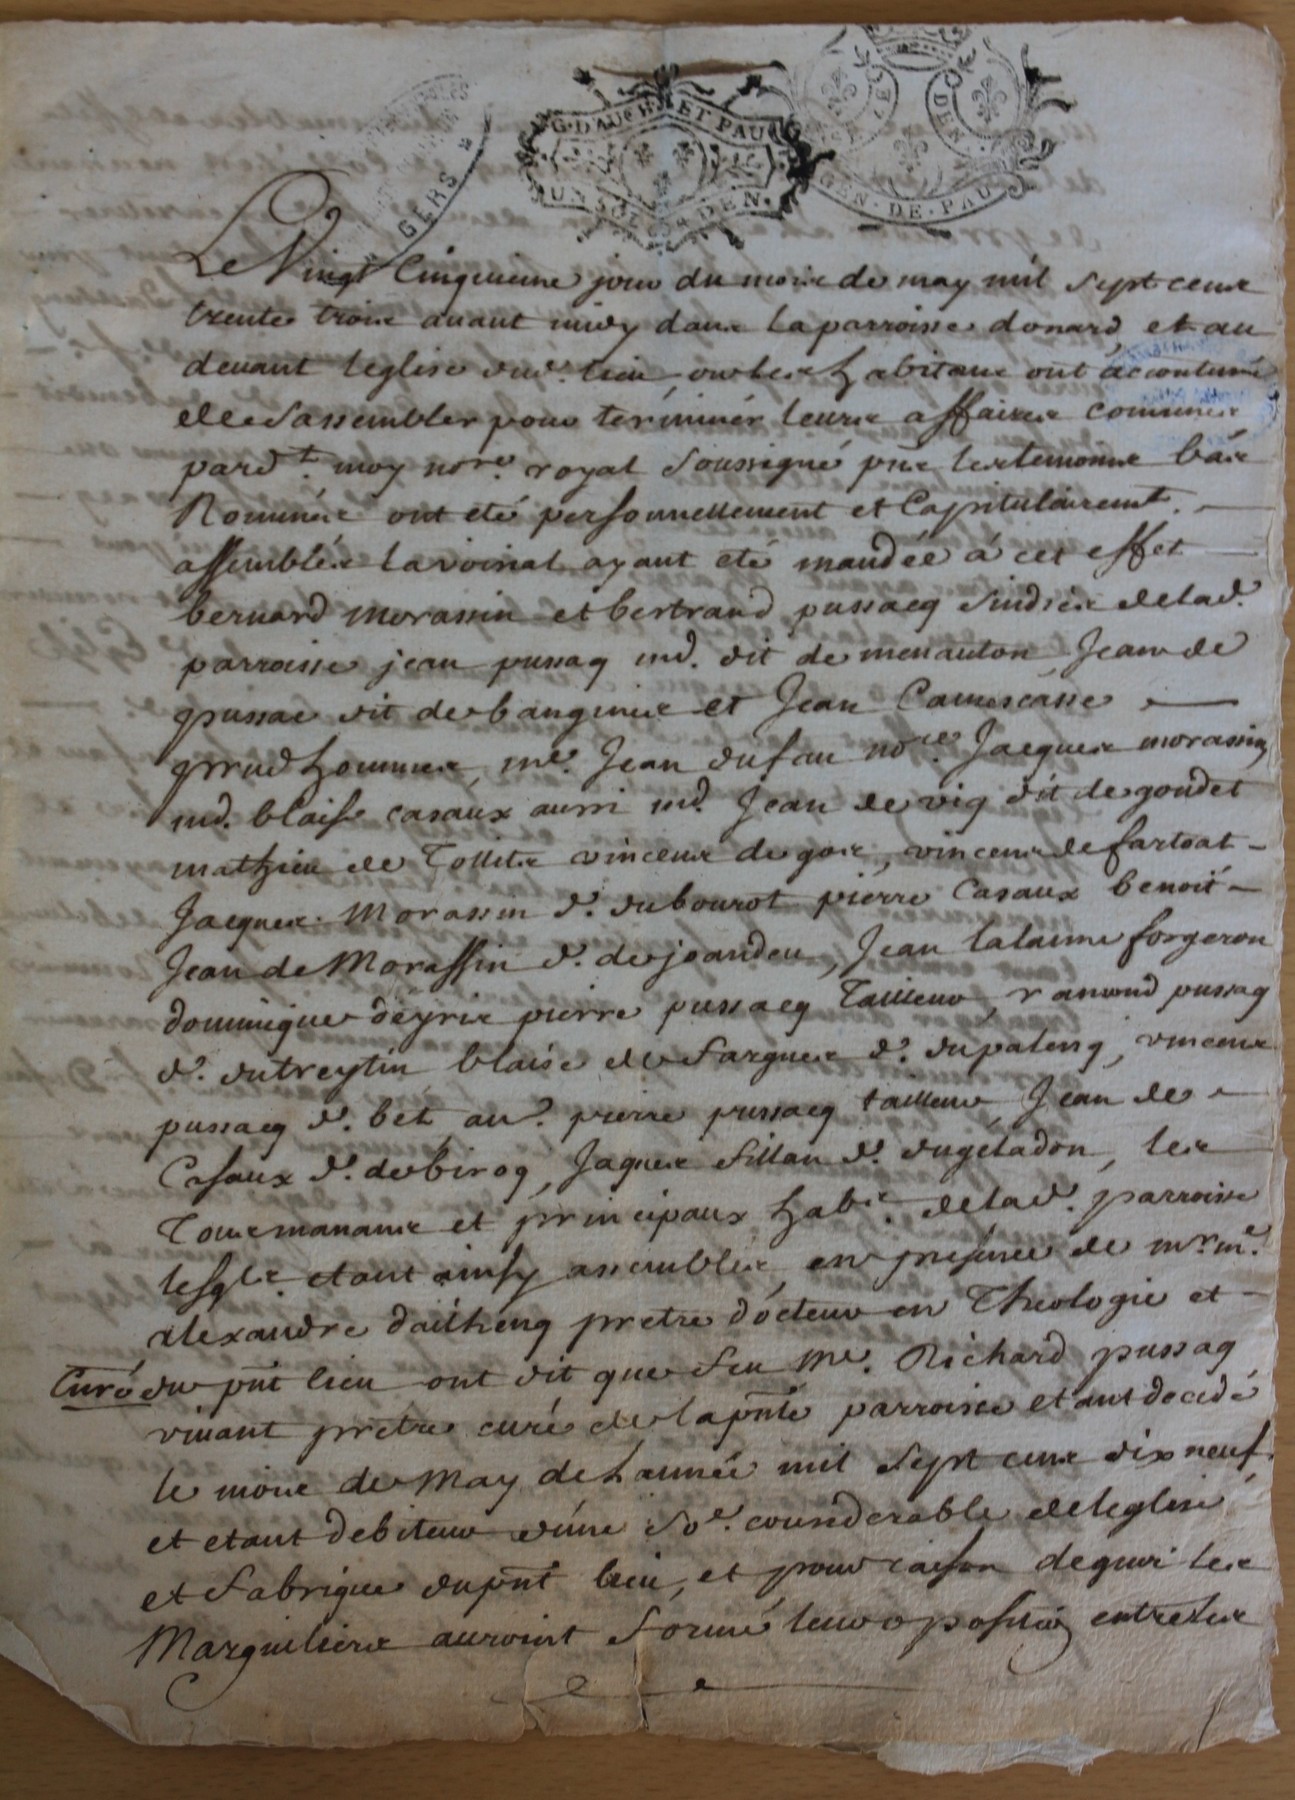 G. D'AUCH ET PAU
UN SOL DEN.
GEN. DE. PAU
DEN.
GERS
Le Vingt Cinquieme jour du mois de may mil sept cens
trente trois avant midy dans la parroisse donard, et au
devant leglise dud. lieu ou les habitans ont accoutumé
de sassembler pour terminér leurs affaires communes
pard.t moy no.re royal soussigné pns les temoins bás
Nommés ont eté personnellement et Capitulairemt.
assemblés la voisial ayant eté mandée á cet effet
bernard morassin et bertrand pussacq sindics de lad.
parroisse jean pussaq md. dit de menauton, Jean de
pussac dit de banginis et Jean Camescasse
prudhommes, me. Jean dufau no.re Jacques morassin
md. blaise casaux aussi md. Jean de vig dit de goudet
mathieu de Tollits vincens de gos, vincens defartoat
Jacques Morassin d. dubourot pierre Casaux benoit
Jean de Morassin d. de joandeu, Jean lalanne forgeron
dominique deyris pierre pussacq Tailleur, ramond pussaq
d. dutreytin blaise de fargues d. dupaleng, vincens
pussacq d. bet au. pierre pussacq tailleur, Jean de
Casaux d. de biroq, Jaques sillan d. dugéladon, les
Tous manans et principaux habs. de lad. parroisse
lesqls. etant ainsy assemblés en presence de mr. me.
alexandre daitheng pretre docteur en Theologie et
Curé du pnt lieu ont dit que feu me. Richard pussaq
vivant pretre curé de la pnte parroisse etant decedé
le mois de May de Lannée mil sept cens dix neuf
et etant debiteur dúne so.e considerable de leglise
et fabrique du pnt lieu, et pour raison de quoi les
Marguiliers auroint formé leur opositio entre les